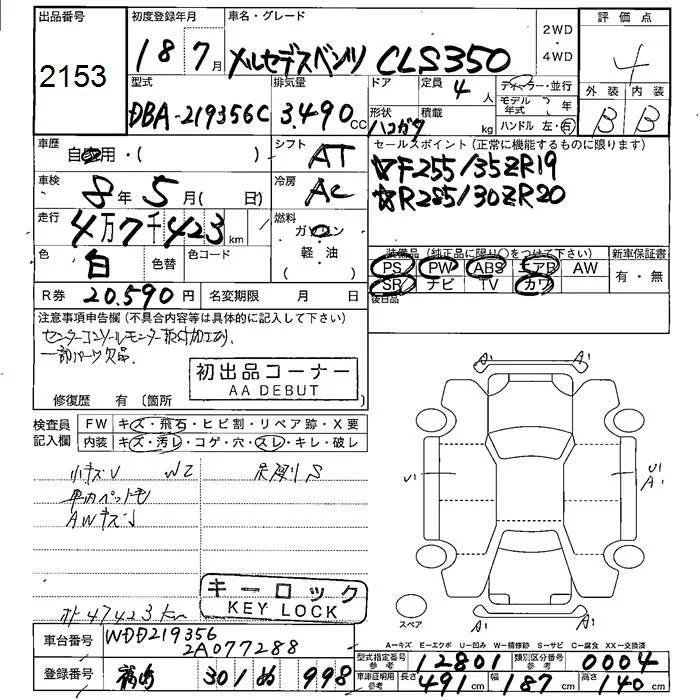 出品番号
2153
初度登録年月
18 7月
車名・グレード
メルセデスベンツ CLS350
2WD
・
4WD
評価点
4
外装 内装
B B
型式
DBA-219356C
排気量
3.490 cc
ドア
形状
ハコガタ
定員
4人
積載
kg
ディーラー・並行
モデル年式 年
ハンドル 左・右
車歴
自家用・( )
シフト
AT
車検
8年5月( 日)
冷房
AC
走行
4万7千423 km
燃料
ガソリン
軽・油
( )
色
白
色替
色コード
R券
20.590円
名変期限 月 日
セールスポイント(正常に機能するものに限ります)
☆F255/35ZR19
☆R285/30ZR20
装備品(純正品に限り○をつけて下さい)
新車保証書
PS PW ABS エアB AW
SR ナビ TV カワ
有・無
後日品
注意事項申告欄(不具合内容等は具体的に記入して下さい)
センターコンソールモニター取付加工あり
一部パーツ欠品
初出品コーナー
AA DEBUT
修復歴 有(箇所 )
検査員
記入欄
FW キズ・飛石・ヒビ割・リペア跡・X要
内装 キズ・汚レ・コゲ・穴・スレ・キレ・破レ
小キズU W2
車内ペット毛
AWキズ
S
キーロック
KEY LOCK
47423km
車台番号
WDD219356
2A077288
登録番号
福島 301 ぬ 998
A¹ A¹
U¹
U¹
A¹
スペア
A¹ A¹
A=キズ E=エクボ U=凹み W=補修跡 S=サビ C=腐食 XX=交換済
型式指定番号
参考
12801
類別区分番号
参考
0004
車庫証明用
参考
長さ 491cm 幅 187cm 高さ 140cm